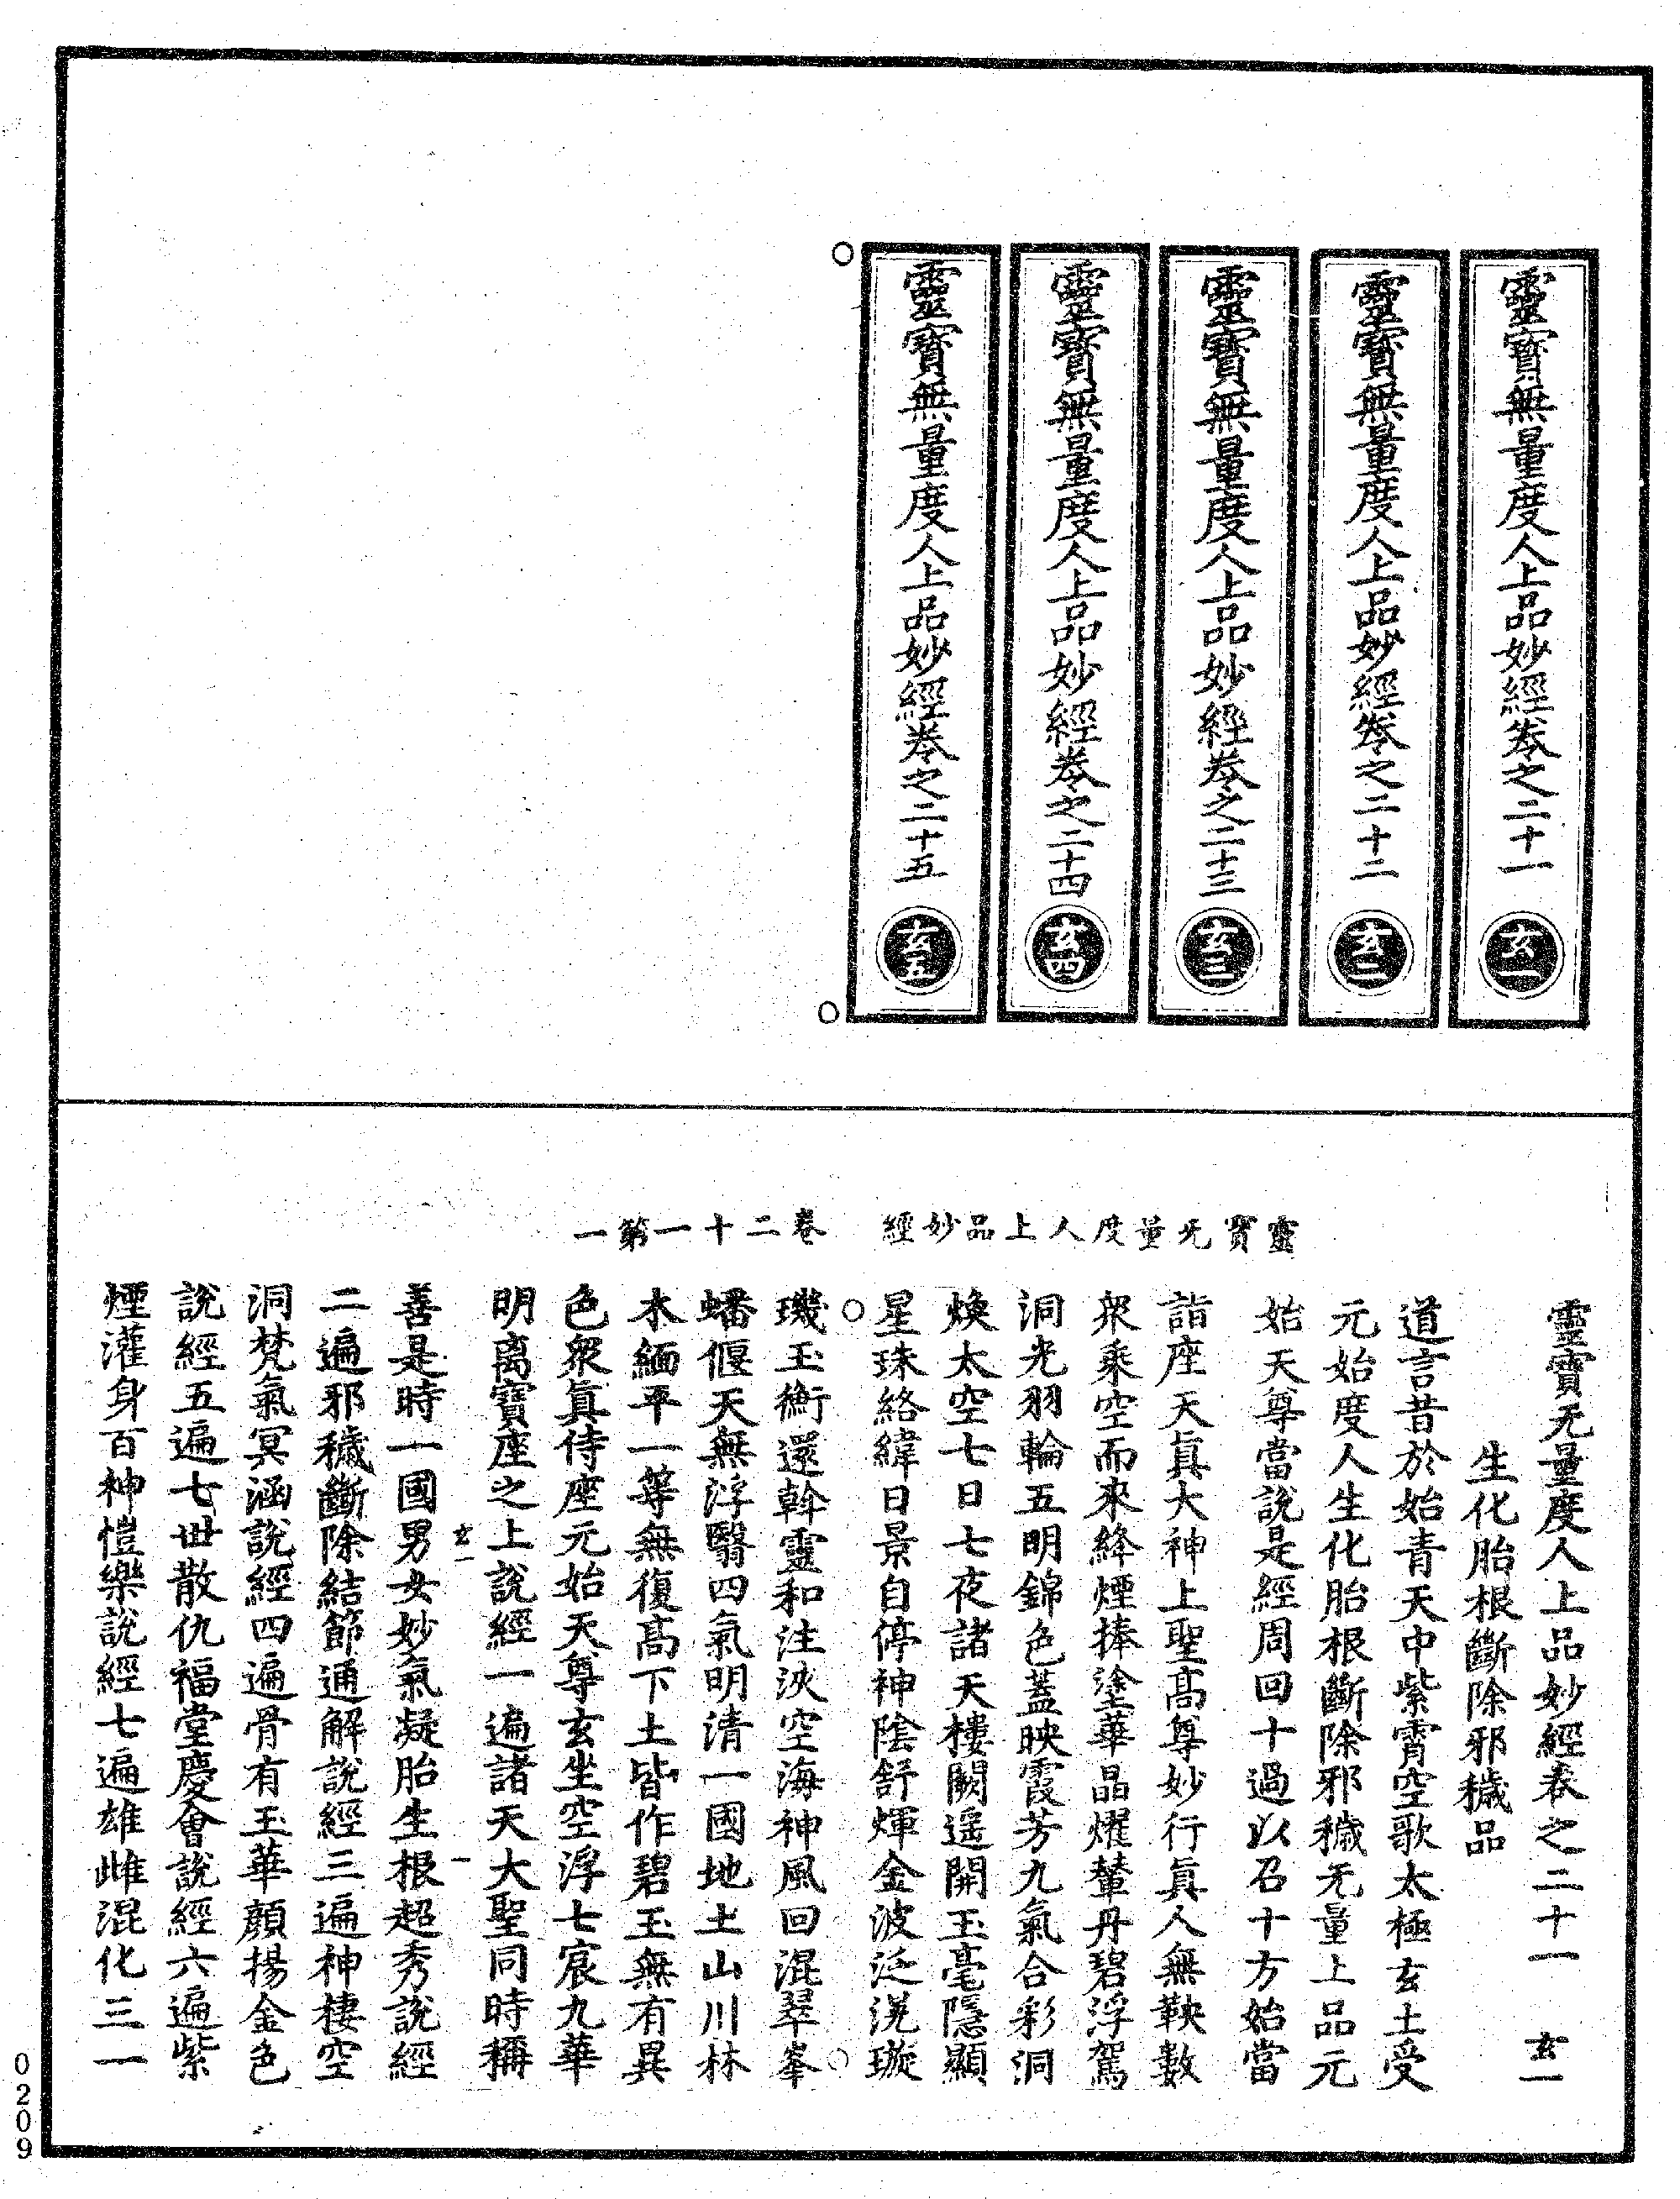 靈寶無量度人上品妙經卷之二十一
玄一
靈寶無量度人上品妙經卷之二十二
玄二
靈寶無量度人上品妙經卷之二十三
玄三
靈寶無量度人上品妙經卷之二十四
玄四
靈寶無量度人上品妙經卷之二十五
玄五
靈寶无量度人上品妙經 卷二十一第一
靈寶无量度人上品妙經卷之二十一 玄一
生化胎根斷除邪穢品
道言昔於始青天中紫霄空歌太極玄土受
元始度人生化胎根斷除邪穢无量上品元
始天尊當說是經周回十過以召十方始當
詣座天眞大神上聖高尊妙行眞人無鞅數
衆乘空而來絳煙捧塗華晶燿輦丹碧浮駕
洞光羽輪五明錦色蓋映霞芳九氣合彩洞
煥太空七日七夜諸天樓闕遙開玉毫隱顯
星珠絡緯日景自停神陰舒煇金波泛滉璇
璣玉衡還斡靈和注浹空海神風回混翠峯
蟠偃天無浮翳四氣明清一國地土山川林
木緬平一等無復高下土皆作碧玉無有異
色衆眞侍座元始天尊玄坐空浮七宸九華
明离寶座之上說經一遍諸天大聖同時稱
玄一 一
善是時一國男女妙氣凝胎生根超秀說經
二遍邪穢斷除結節通解說經三遍神棲空
洞梵氣冥涵說經四遍骨有玉華顏揚金色
說經五遍七世散仇福堂慶會說經六遍紫
煙灌身百神愷樂說經七遍雄雌混化三一
0209